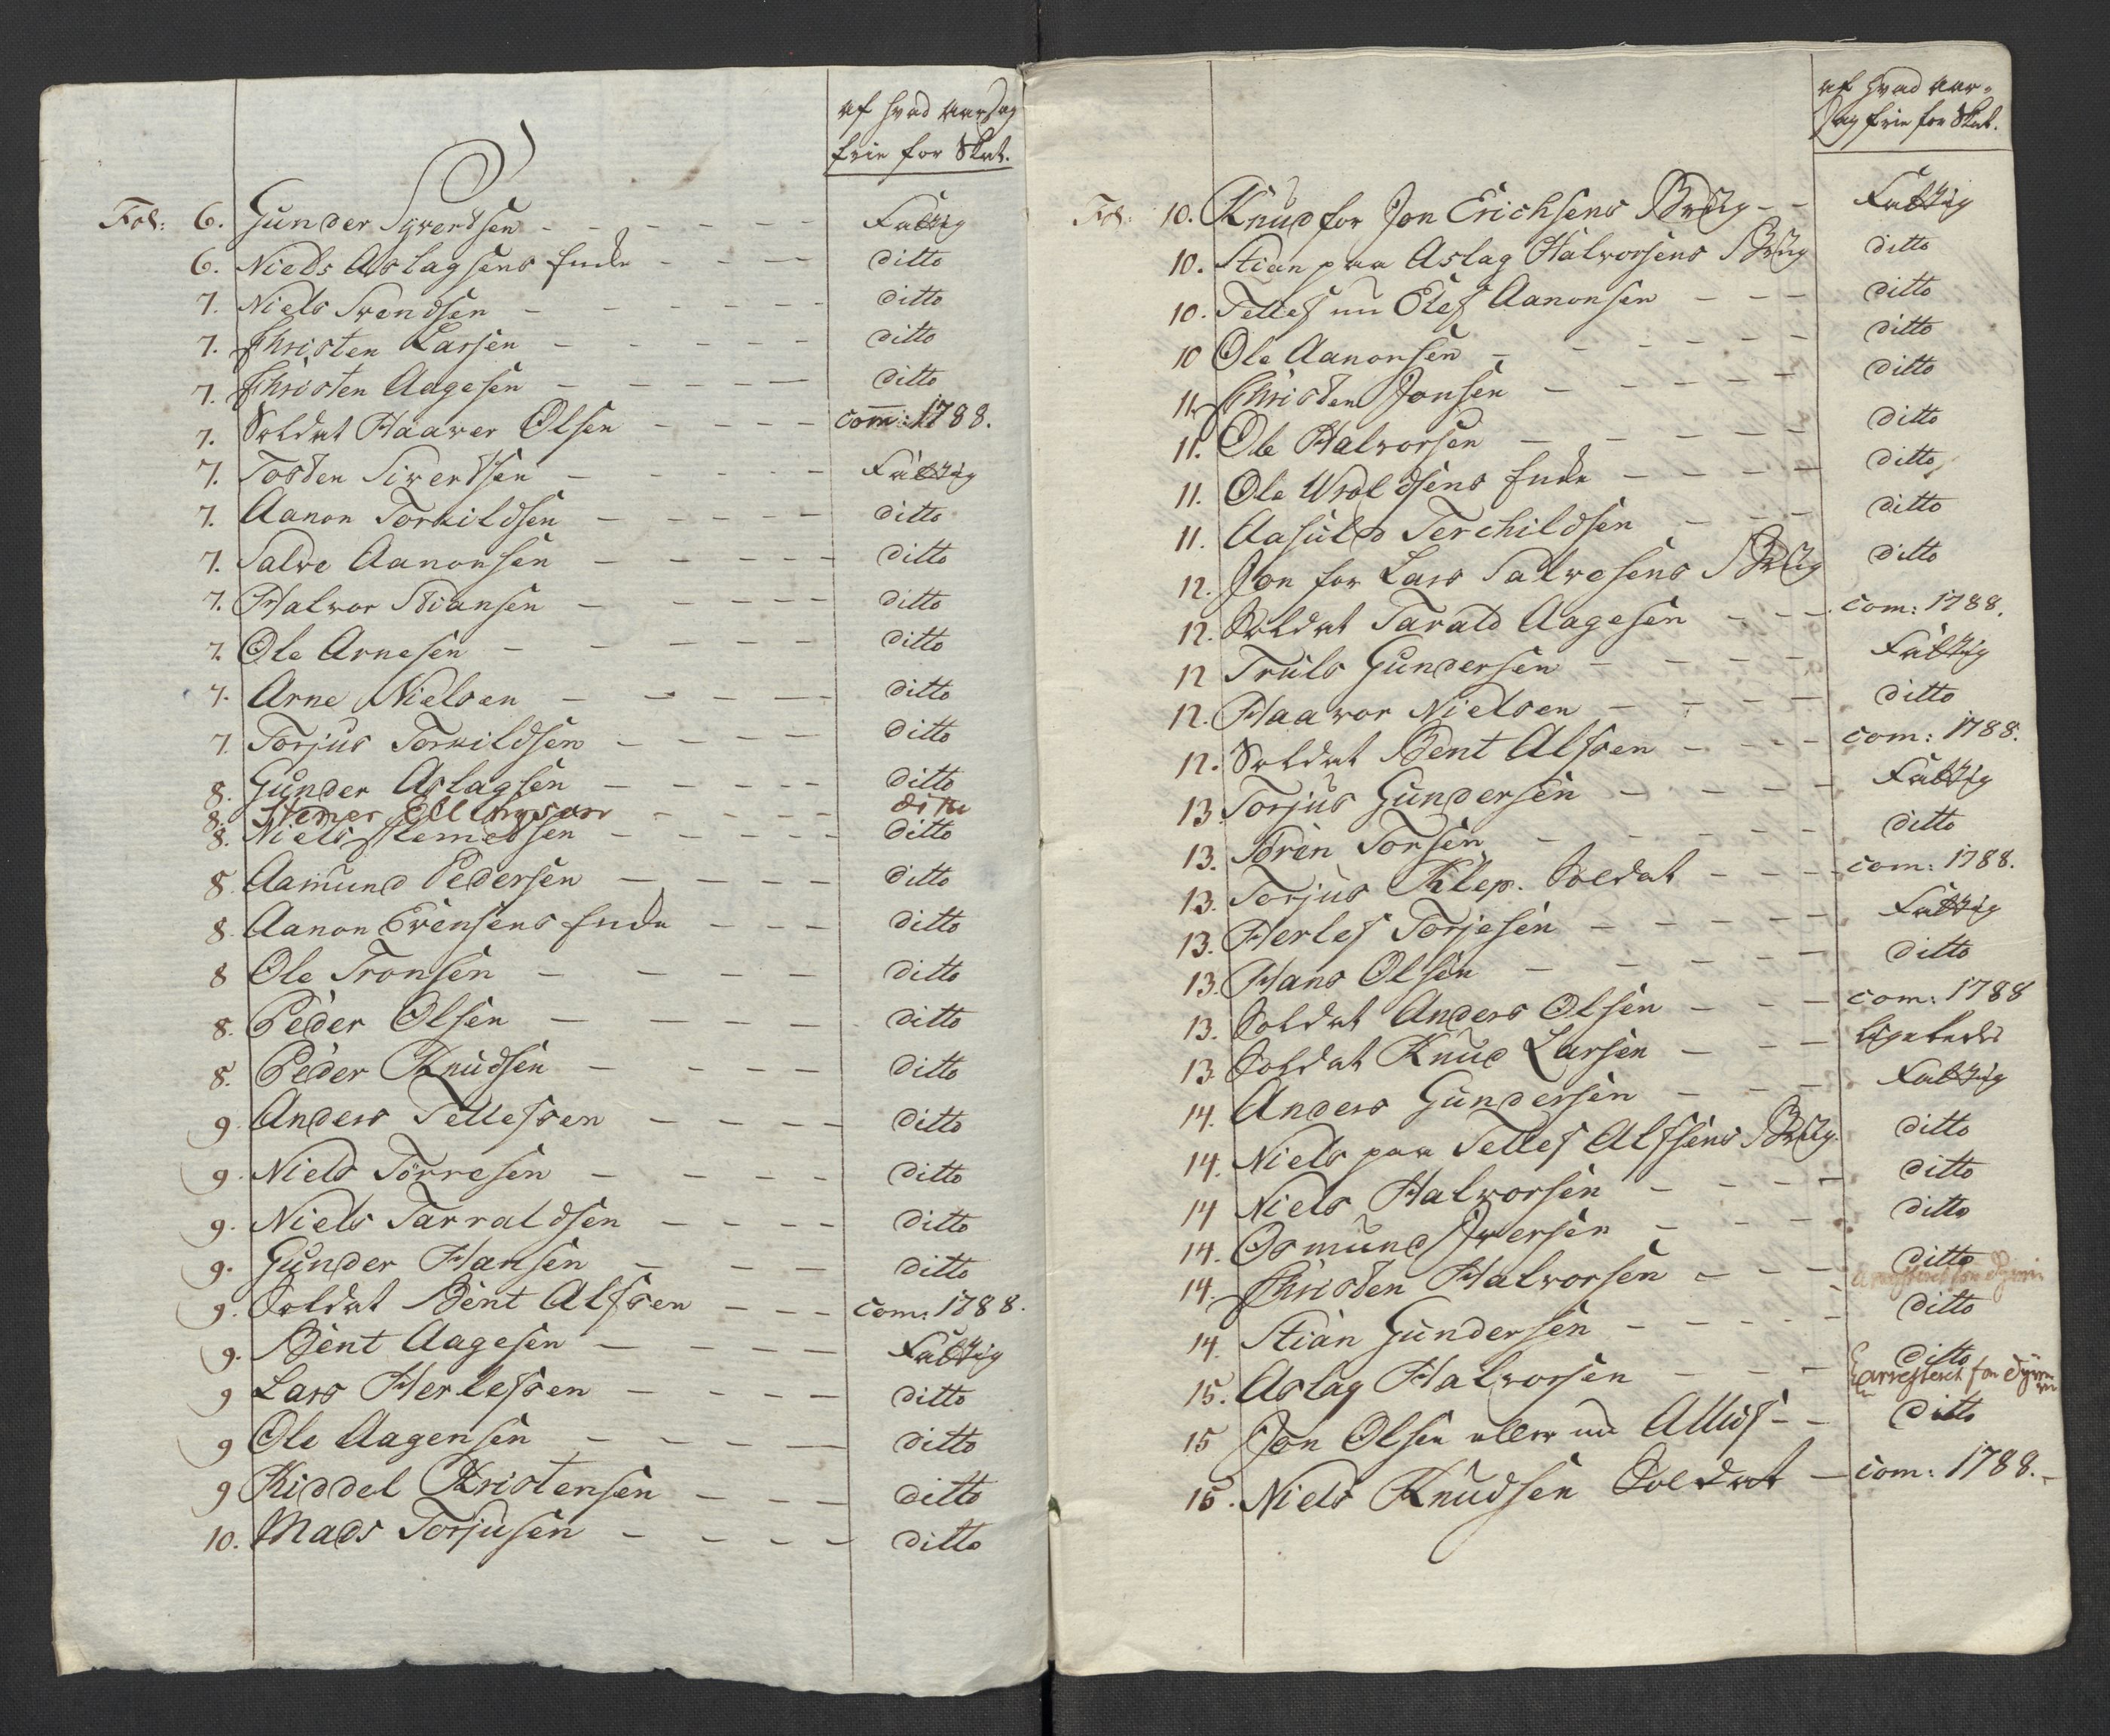 af hvad aarsag
frie for Skat.
Fol: 6. Gunder Syvertsen - - - - - Fattig
6. Niels Aslagsens Enke - - - - ditto
7. Niels Svendsen - - - - - ditto
7. Christen Larsen - - - - - ditto
7. Christen Aagesen - - - - - ditto
7. Soldat Haaver Olsen - - - - com: 1788.
7. Tosten Sivertsen - - - - - Fattig
7. Aanon Torkildsen - - - - - ditto
7. Salve Aanonsen - - - - - ditto
7. Halvor Stiansen - - - - - ditto
7. Ole Arnesen - - - - - ditto
7. Arne Nielsen - - - - - ditto
7. Torjus Torkildsen - - - - ditto
8. Gunder Aslagsen - - - - - ditto
8. Stemer Ellingsen - - - - ditto
8. Niels Stemersen - - - - - ditto
8. Aamund Pedersen - - - - ditto
8. Aanon Evensens Enke - - - ditto
8 Ole Tronsen - - - - ditto
8. Peder Olsen - - - - - ditto
8. Peder Knudsen - - - - ditto
9. Anders Tellefsen - - - - ditto
9. Niels Törresen - - - - ditto
9. Niels Tarraldsen - - - - ditto
9. Gunder Hansen - - - ditto
9. Soldat Bent Alfsen - - - com: 1788.
9. Bent Aagesen - - - - Fattig
9 Lars Herlefsen - - - - ditto
9 Ole Aagensen - - - - - ditto
9 Kiddel Kristensen - - - ditto
10. Mads Torjusen - - - - ditto
af hvad aar-
sag frie for Skat.
Fol: 10. Knud for Jon Erichsens Brug - - Fattig
10. Stian paa Aslag Halvorsens Brug ditto
10. Tellef nu Elef Aanonsen - - - ditto
10 Ole Aanonsen - - - - - ditto
11. Christen Jonsen - - - - - ditto
11. Ole Halvorsen - - - - - ditto
11. Ole Wroldsens Enke - - - - ditto
11. Aasuld Terchildsen - - - ditto
12. Jon for Lars Salvesens Brug ditto
12. Soldat Tarald Aagesen - - - com: 1788.
12 Truls Gundersen - - - - Fattig
12. Haavor Nielsen - - - - ditto
12. Soldat Bent Alfsen - - - - com: 1788.
13 Torjus Gundersen - - - - - Fattig
13. Sören Torsen - - - - - ditto
13. Torjus Klep. Soldat - - - - com: 1788.
13. Herlef Torjesen - - - - - Fattig
13. Hans Olsen - - - - - ditto
13. Soldat Anders Olsen - - - com: 1788
13 Soldat Knud Larsen - - - ligeledes
14. Anders Gundersen - - - Fattig
14. Niels paa Tellef Alfsens Brug. ditto
14 Niels Halvorsen - - - - ditto
14. Osmund Iversen - - - ditto
14. Christen Halvorsen - - - - ditto
arresteret for Tyveri
14. Stian Gundersen - - - - - ditto
15. Aslag Halvorsen - - - ditto
arresteret for Tyverie
15 Jon Olsen eller nu Allief - - ditto
15. Niels Knudsen Soldat - com: 1788. -